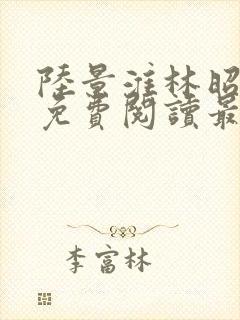 陸景淮林昭
免費閱讀最
李富林